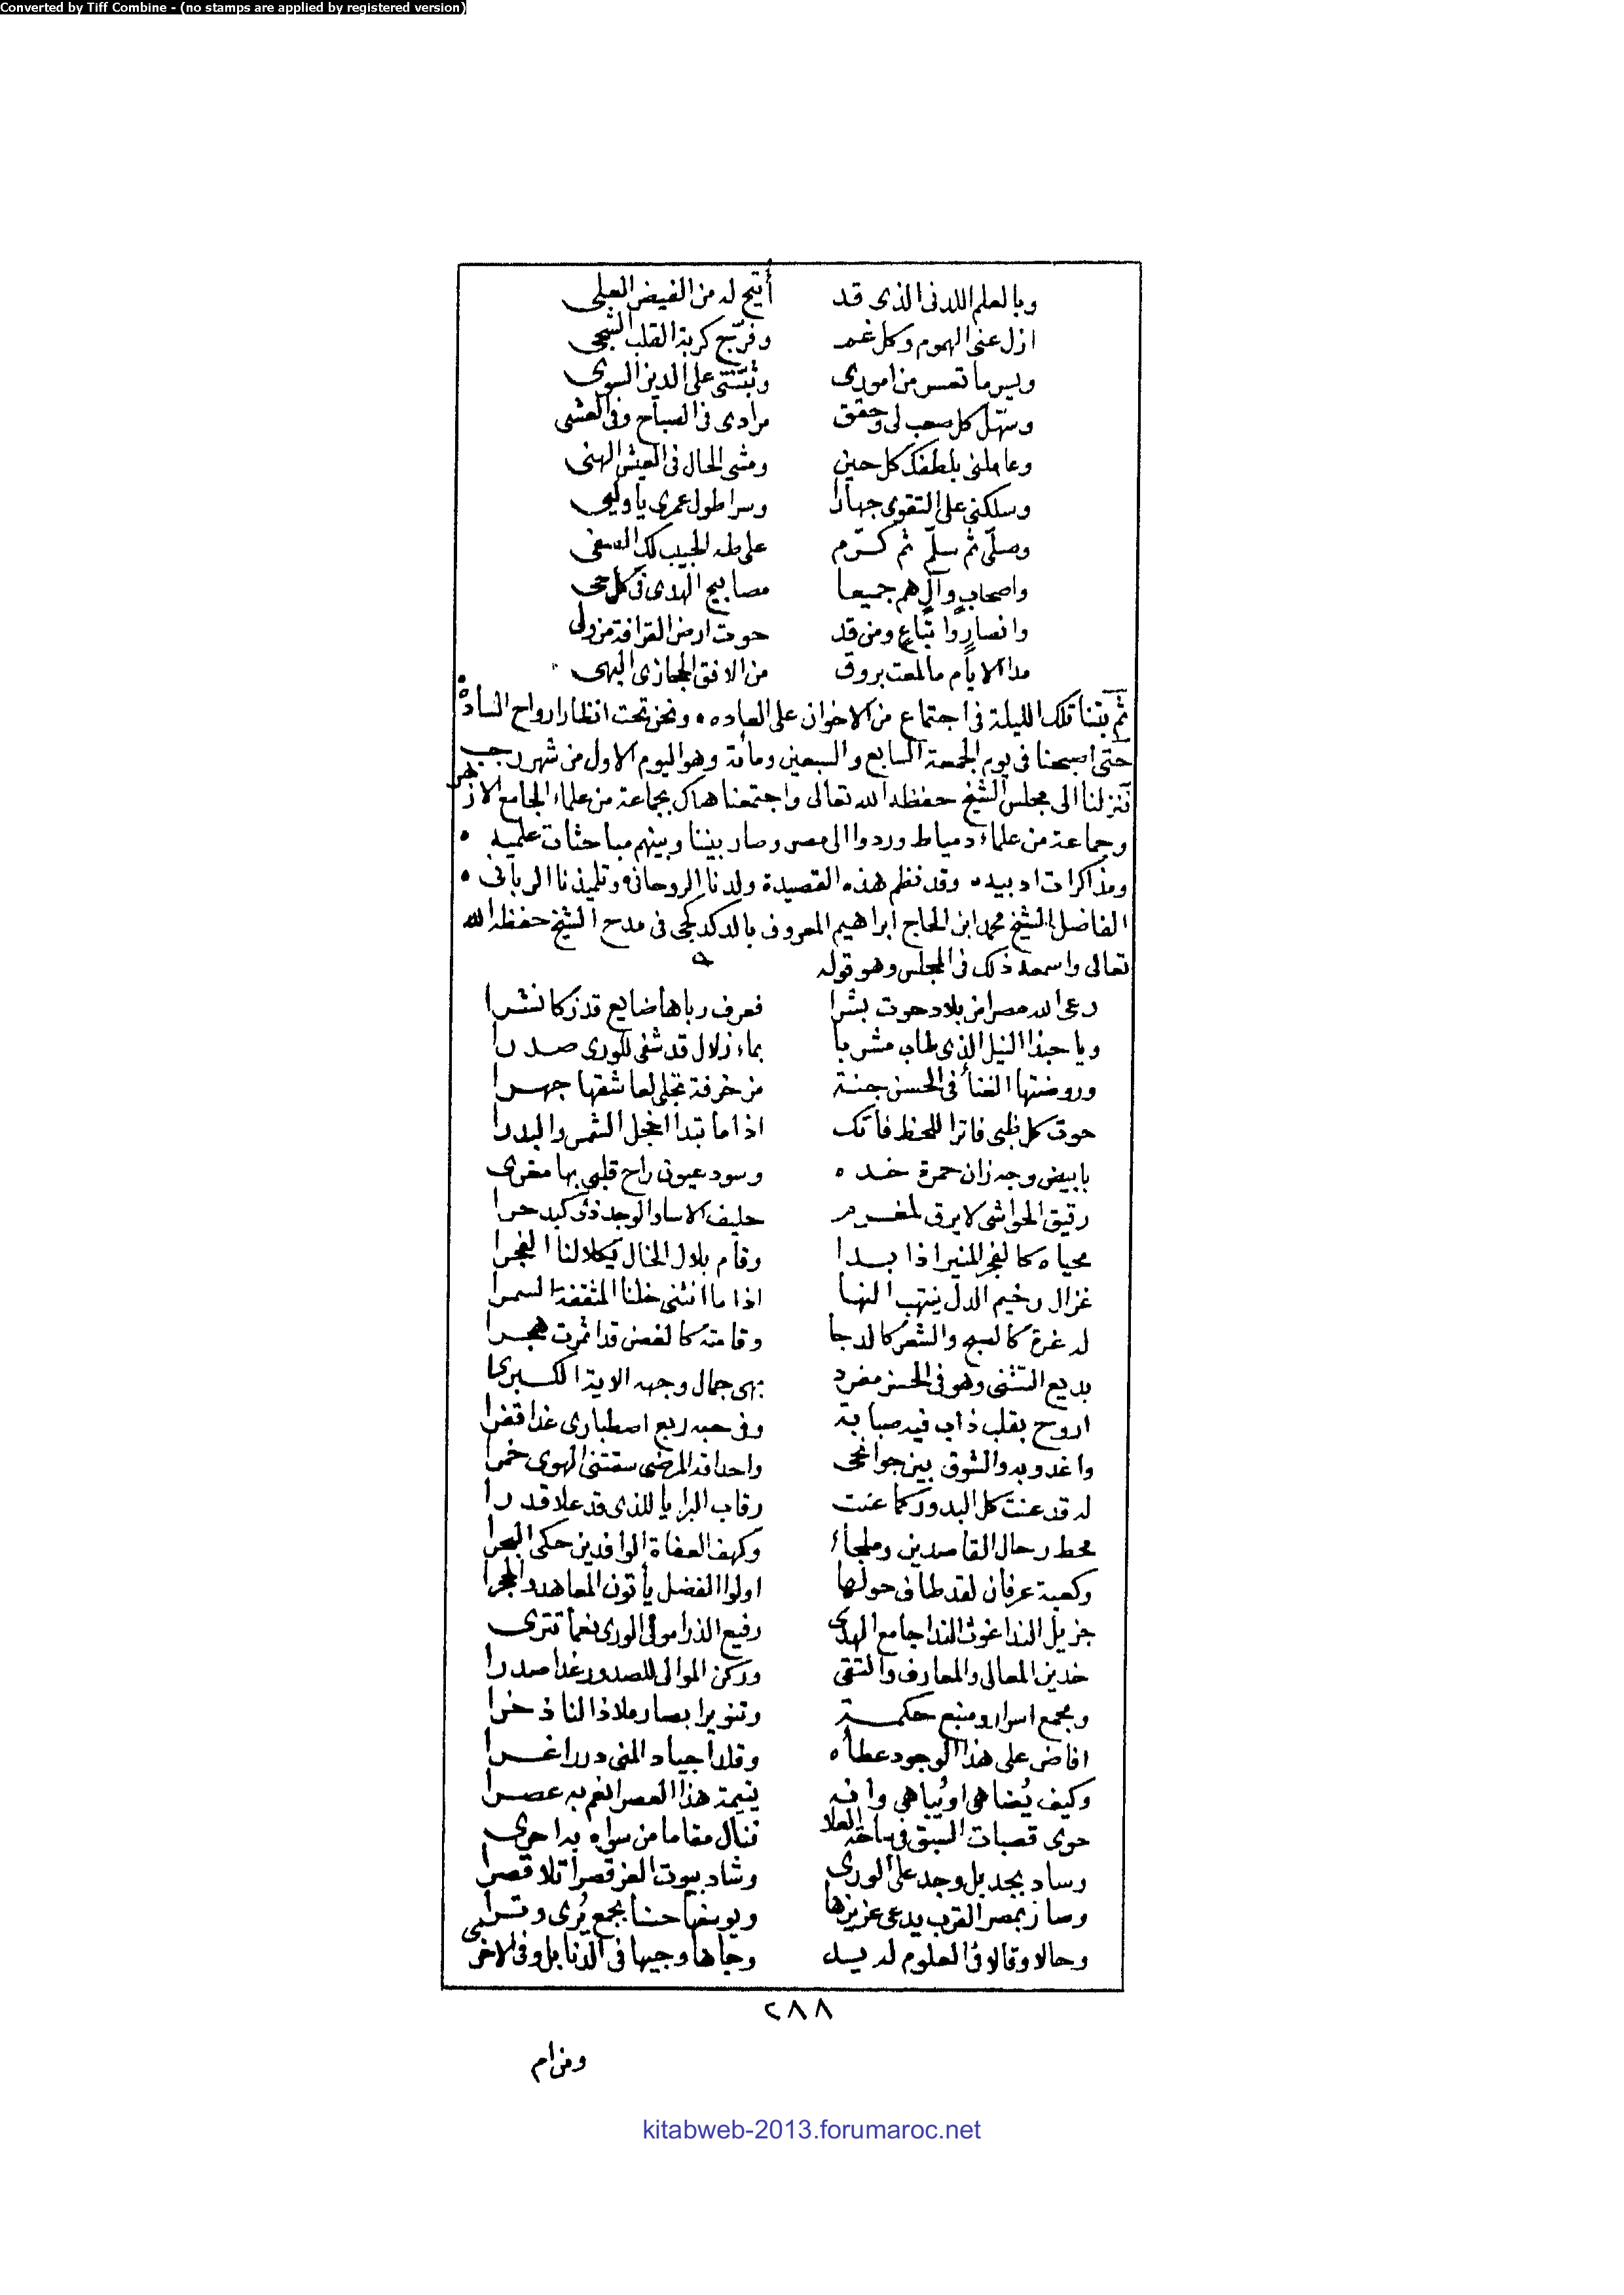 Converted by Tiff Combine - (no stamps are applied by registered version)
وبالعلم اللدنى الذى قد أتيح له من الفيض العلى
ازل عنى الهموم وكل غم وفرّج كربة القلب الشجى
ويسر ما تعسر من امورى وثبّتنى على الدين السوى
وسهّل كل صعب لى وحقق مرادى فى الصباح وفى العشى
وعاملنى بلطفك كل حين ومشى الحال فى العيش الهنى
وسلكنى على التقوى جهارا وسرا طول عمرى يا وليى
وصلّى ثم سلّم ثم كرّم على طه الحبيب لك الصفى
واصحاب وآل هم جميعا مصابيح الهدى فى كل حى
وانصار واتباع ومن قد حوت ارض القرافة من ولى
مدا الايام ما لمعت بروق من الافق الحجازى البهى
ثم بتنا تلك الليلة فى اجتماع من الاخوان على العاده ونحن تحت انظار ارواح الساده
حتى اصبحنا فى يوم الجمعة السابع والسبعين ومأئة وهو اليوم الاول من شهر رجب
فنزلنا الى مجلس الشيخ حفظه الله تعالى واجتمعنا هناك بجماعة من علماء الجامع الازهر
وجماعة من علماء دمياط وردوا الى مصر وصار بيننا وبينهم مباحثات علميه
ومذاكرات ادبيه وقد نظم هذه القصيدة ولدنا الروحانى وتلميذنا الربانى
الفاضل الشيخ محمد ابن الحاج ابراهيم المعروف بالدكدكجى فى مدح الشيخ حفظه الله
تعالى واسمعه ذلك فى المجلس وهو قوله
رعى الله مصرا من بلاد حوت بشرا فعرف رباها ضايع قد زكا نشرا
ويا حبذا النيل الذى طاب مشربا بماء زلال قد شفى للورى صدرا
وروضتها الغنأ فى الحسن جنة مزخرفة تجلى لعاشقها جهرا
حوت كل ظبى فاتر اللحظ فاتك اذا ما تبدا اخجل الشمس والبدرا
بابيض وجه زان حمرة خده وسود عيون راح قلبى بها مغرى
رقيق الحواشى لا يرق لمغرم حليف الاسا والوجد ذى كبد حرا
محياه كالفجر المنير اذا بدا وقام بلال الخال يكلا لنا الفجرا
غزال رخيم الدل ينتهب النها اذا ما انثنى خلنا المثقفة السمرا
له غرة كالصبح والشعر كالدجا وقامته كالغصن قد اثمرت هجرا
بديع التثنى وهو فى الحسن مفرد بهى جمال وجهه الاية الكبرى
اروح بقلب ذاب فيه صبابة وفى حبه ربع اصطبارى غدا قفرا
واغدو به والشوق بين جوانحى واحداقه المرضى سقتنى الهوى خمرا
له قد عنت كل البدور كما عنت رقاب البرايا للذى قد علا قدرا
محط رحال القاصدين وملجاء وكهف العفاة الوافدين حكى البحرا
وكعبة عرفان لقد طاف حولها اولوا الفضل يأتون المعاهد والحجرا
جزيل الندا غوث الندا جامع الهدى رفيع الذرا مولى الورى نعمأ تترى
خدين المعالى والمعارف والتقى وركن الموالى للصدور غدا صدرا
ومجمع اسرار ومنبع حكمة وتنوير ابصار ملاذا لنا ذخرا
افاض على هذا الوجود عطأه وقلد اجياد المنى دررا غرا
وكيف يُضاهى او يُباهى وانه يتيمة هذا العصر انعم به عصرا
حوى قصبات السبق فى ساحة العلا فنال مقاما من سواه به احرى
وساد بجد بل وجد على الورى وشاد بيوت العز قصرا تلا قصرا
وسار بمصر القرب يدعى عزيزها ويوسفها حسنا بجمع يُرى وترا
وحالا وقالا فى العلوم له يد وجاها وجيها فى الدنا بل وفى الاخرى
٢٨٨
ومن ام
kitabweb-2013.forumaroc.net